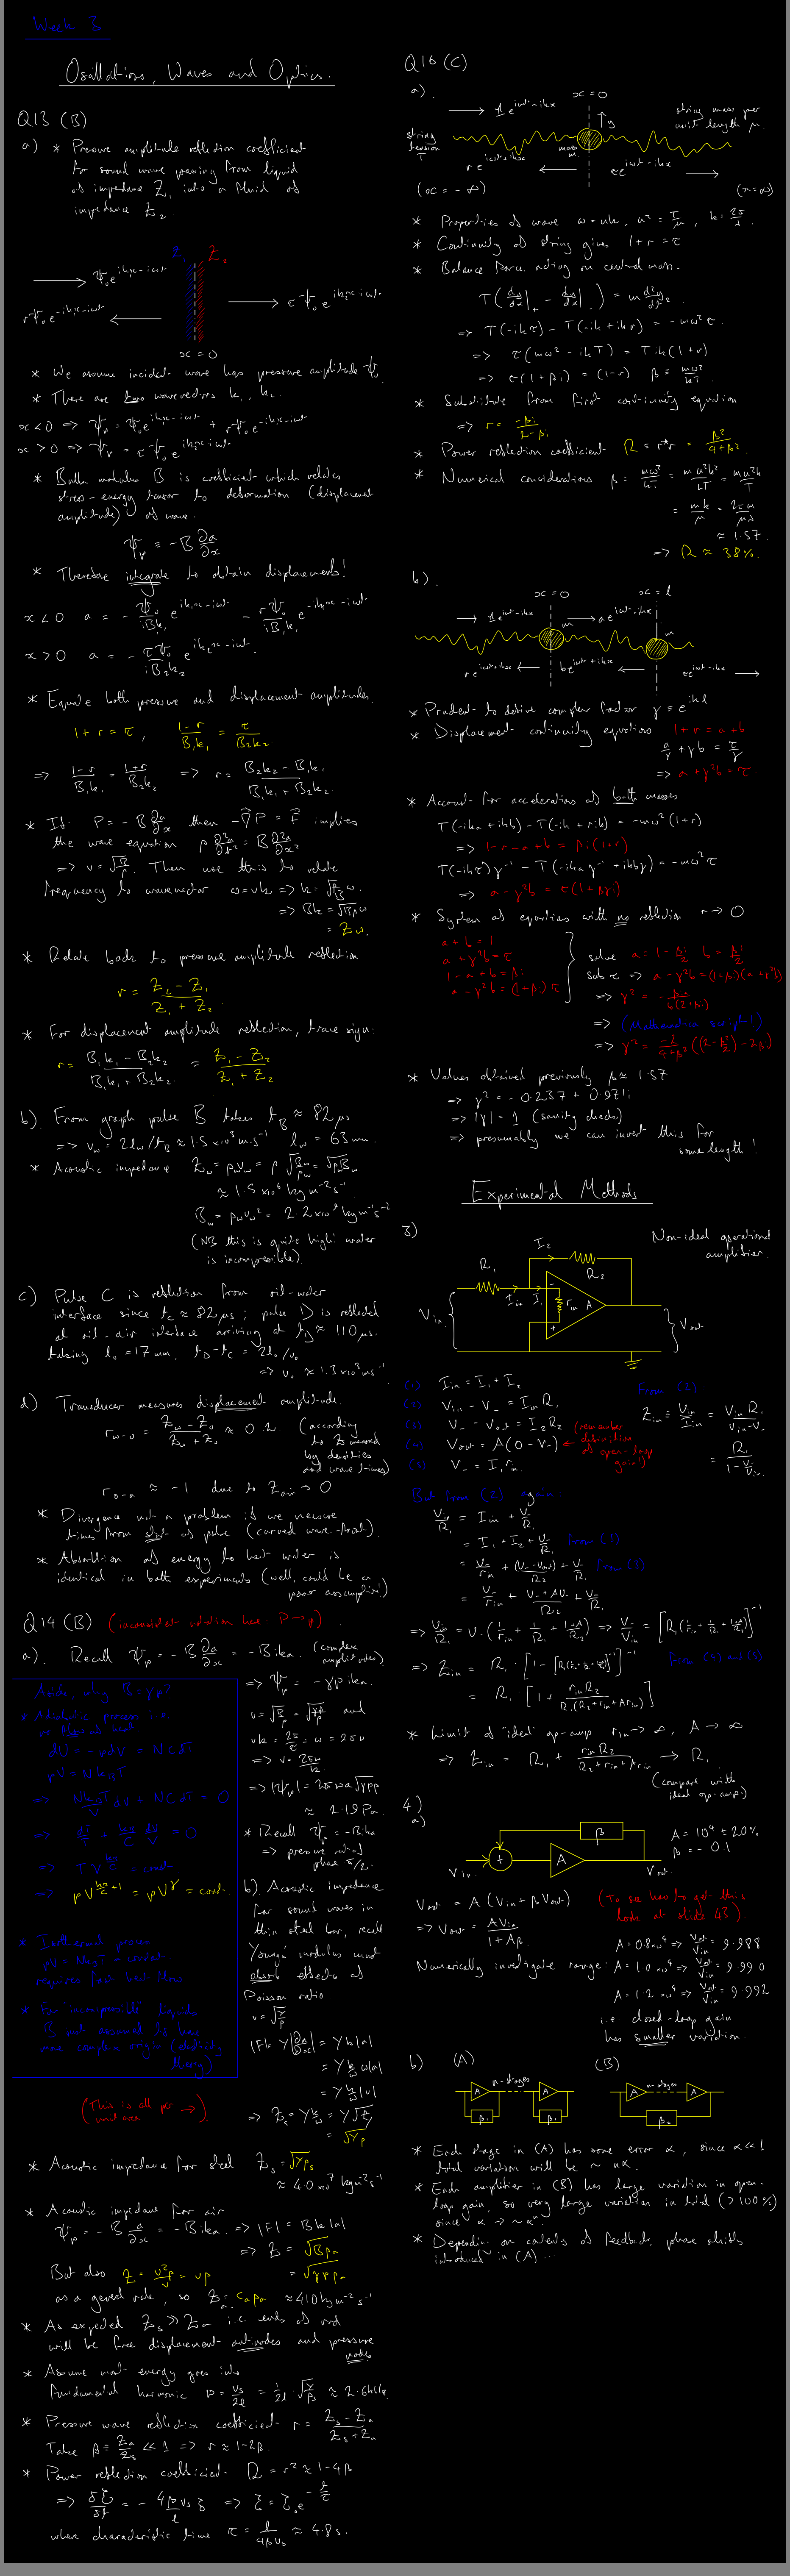 Week 3
Oscillations, Waves and Optics.
Q13 (B)
a) * Pressure amplitude reflection coefficient
for sound wave passing from liquid
of impedance Z₁ into a fluid of
impedance Z₂.
Z₁ Z₂
x=0
* We assume incident wave has pressure amplitude ψ₀.
* There are two wavevectors k₁, k₂.
x<0 => ψp = ψ₀e^{ik₁x-iωt} + rψ₀e^{-ik₁x-iωt}
x>0 => ψp = τψ₀e^{ik₂x-iωt}
* Bulk modulus B is coefficient which relates
stress-energy tensor to deformation (displacement
amplitude) of wave.
ψp = -B ∂a/∂x
* Therefore integrate to obtain displacements!
x<0 a = -ψ₀/(iBk₁) e^{ik₁x-iωt} - rψ₀/(iBk₁) e^{-ik₁x-iωt}
x>0 a = -τψ₀/(iB₂k₂) e^{ik₂x-iωt}
* Equate both pressure and displacement amplitudes.
1+r = τ, (1-r)/(B₁k₁) = τ/(B₂k₂)
=> (1-r)/(B₁k₁) = (1+r)/(B₂k₂) => r = (B₂k₂ - B₁k₁)/(B₁k₁ + B₂k₂)
* If P = -B ∂a/∂x then -∇P = F implies
the wave equation ρ ∂²a/∂t² = B ∂²a/∂x²
=> v = √(B/ρ). Then use this to relate
frequency to wavevector ω=vk => k = √(ρ/B) ω.
=> Bk = √(Bρ) ω
= Zω.
* Relate back to pressure amplitude reflection
r = (Z₂ - Z₁)/(Z₁ + Z₂)
* For displacement amplitude reflection, trace sign.
r = (B₁k₁ - B₂k₂)/(B₁k₁ + B₂k₂) = (Z₁ - Z₂)/(Z₁ + Z₂)
b) From graph pulse B takes t_B ≈ 82 μs
=> v_w = 2l_w/t_B ≈ 1.5 ×10³ m s⁻¹ l_w = 63 mm.
* Acoustic impedance Z_w = ρ_w v_w = ρ√(B_w/ρ_w) = √(ρ_w B_w)
≈ 1.5 ×10⁶ kg m⁻² s⁻¹
B_w = ρ_w v_w² = 2.2 ×10⁹ kg m⁻¹ s⁻²
(NB this is quite high! water
is incompressible).
c) Pulse C is reflection from oil-water
interface since t_C ≈ 82 μs; pulse D is reflected
at oil-air interface arriving at t_D ≈ 110 μs.
taking l₀ = 17 mm, t_D - t_C = 2l₀/v₀
=> v₀ ≈ 1.3 ×10³ m s⁻¹.
d) Transducer measures displacement amplitude.
r_{w-o} = (Z_w - Z_o)/(Z_w + Z_o) ≈ 0.2. (according
to Z's measured
by densities
and wave times)
r_{o-a} ≈ -1 due to Z_air → 0
* Divergence not a problem if we measure
times from start of pulse (curved wave-front).
* Absorption of energy to heat water is
identical in both experiments (well, could be a
poor assumption!)
Q14 (B) (inconsistent notation here P → p)
a). Recall ψp = -B ∂a/∂x = -Bika. (complex
amplitudes)
Aside, why B=γp?
* Adiabatic process i.e.
dU = -pdV = NCdT
pV = Nk_BT
=> Nk_BT/V dV + NCdT = 0
=> dT/T + k_B/C dV/V = 0
=> TV^{k_B/C} = const
=> pV^{k_B/C+1} = pV^γ = const.
* Isothermal process
pV = Nk_BT = constant
requires fast heat flow
* For "incompressible" liquids
B not assumed to have
more complex origin (elasticity
theory)
=> ψp = -γp ika.
v = √(B/ρ) = √(γp/ρ) and
vk = 2π/τ = ω = 2πν
=> |ψp| = 2πνa√(γpρ)
≈ 2.19 Pa.
* Recall ψp = -Bika
=> pressure out of
phase π/2.
b). Acoustic impedance
for sound waves in
thin steel bar, recall
Young's modulus must
absorb effects of
Poisson ratio.
v = √(Y/ρ)
|F| = Y|∂a/∂x| = Yk|a|
= Y k/ω ω|a|
= Y k/ω |v|
=> Z_s = Y k/ω = Y√(ρ/Y)
= √(Yρ)
(This is all per →)
unit area
* Acoustic impedance for steel Z_s = √(Yρ_s)
≈ 4.0 ×10⁷ kg m⁻² s⁻¹
* Acoustic impedance for air
ψp = -B ∂a/∂x = -Bika. => |F| = Bk|a|
=> Z = √(Bρ_a)
= √(γpρ_a)
But also Z = v²ρ/v = vρ
as a general rule, so Z_a = c_aρ_a ≈ 410 kg m⁻² s⁻¹
* As expected Z_s ≫ Z_a i.e. ends of rod
will be free displacement antinodes and pressure
nodes
* Assume most energy goes into
fundamental harmonic ν = v_s/2l = 1/2l · √(Y/ρ_s) ≈ 2.6 kHz.
* Pressure wave reflection coefficient r = (Z_s - Z_a)/(Z_s + Z_a)
Take β = Z_a/Z_s ≪ 1 => r ≈ 1-2β.
* Power reflection coefficient R = r² ≈ 1-4β
=> δξ/δt = -4βv_s/l ξ => ξ = ξ₀e^{-t/τ}
where characteristic time τ = l/(4βv_s) ≈ 4.8 s.
Q16 (C)
a).
x=0
1 e^{iωt-ikx}
string mass per
unit length μ.
string
tension
T
mass
m
y
r e^{iωt+ikx} τ e^{iωt-ikx}
(x=-∞) (x=∞)
* Properties of wave ω=uk, u² = T/μ, k = 2π/λ
* Continuity of string gives 1+r = τ
* Balance force acting on central mass.
T(dy/dx|₊ - dy/dx|₋) = m d²y/dt²
=> T(-ikτ) - T(-ik+ikr) = -mω²τ
=> τ(mω² - ikT) = Tik(1+r)
=> τ(1+βi) = (1-r) β = mω²/kT
* Substitute from first continuity equation
=> r = -βi/(2-βi)
* Power reflection coefficient R = r*r = β²/(4+β²)
* Numerical considerations β = mω²/kT = mu²k²/kT = mu²k/T
= mk/μ = 2πm/μλ
≈ 1.57
=> R ≈ 38%.
b).
x=0 x=l
1 e^{iωt-ikx} a e^{iωt-ikx}
m m
r e^{iωt+ikx} b e^{iωt+ikx} τ e^{iωt-ikx}
* Prudent to define complex factor γ = e^{ikl}
* Displacement continuity equations 1+r = a+b
a/γ + γb = τ/γ
=> a+γ²b = τ
* Account for acceleration of both masses
T(-ika+ikb) - T(-ik+rik) = -mω²(1+r)
=> 1-r-a+b = βi(1+r)
T(-ikτ)γ⁻¹ - T(-ikaγ⁻¹+ikbγ) = -mω²τ
=> a-γ²b = τ(1+βi)
* System of equations with no reflection r → 0
a+b = 1
a+γ²b = τ
1-a+b = βi
a-γ²b = (1+βi)τ
solve a = 1-βi/2 b = βi/2
sub τ => a-γ²b = (1+βi)(a+γ²b)
=> (Mathematica script!)
=> γ² = -2/(4+β²) ((2-β²/2) - 2βi)
* Values obtained previously β ≈ 1.57
=> γ² = -0.237 + 0.971i
=> |γ| = 1 (sanity check)
=> presumably we can invert this for
some length!
Experimental Methods
3)
Non-ideal operational
amplifier.
R₁ I₂ R₂
I_in I₁ r_in A
V_in V_out
(1) I_in = I₁ + I₂
(2) V_in - V₋ = I_in R₁
(3) V₋ - V_out = I₂R₂
(4) V_out = A(0-V₋) ← (remember
definition
of open-loop
gain!)
(5) V₋ = I₁r_in
From (2)
Z_in = V_in/I_in = V_in R₁/(V_in - V₋)
= R₁/(1 - V₋/V_in)
But from (2) again:
V_in/R₁ = I_in + V₋/R₁
= I₁ + I₂ + V₋/R₁ From (1)
= V₋/r_in + (V₋-V_out)/R₂ + V₋/R₁ From (3)
= V₋/r_in + (V₋+AV₋)/R₂ + V₋/R₁
=> V_in/R₁ = V₋(1/r_in + 1/R₁ + (1+A)/R₂) => V₋/V_in = [R₁(1/r_in + 1/R₁ + (1+A)/R₂)]⁻¹
=> Z_in = R₁ · [1 - [R₁(1/r_in + 1/R₁ + (1+A)/R₂)]⁻¹]⁻¹
= R₁ · [1 + r_in R₂/(R₁(R₂+r_in+Ar_in))]
* Limit of "ideal" op-amp r_in → ∞, A → ∞
=> Z_in = R₁ + r_in R₂/(R₂+r_in+Ar_in) → R₁
(compare with
ideal op-amp)
4)
a)
β
V_in + A V_out
A = 10⁴ ± 20%
β = -0.1
V_out = A(V_in + βV_out) (To see how to get this
look at slide 43.)
=> V_out = AV_in/(1+Aβ)
Numerically investigate range: A = 0.8×10⁴ => V_out/V_in = 9.988
A = 1.0×10⁴ => V_out/V_in = 9.990
A = 1.2×10⁴ => V_out/V_in = 9.992
i.e. closed-loop gain
has smaller variation.
b) (A) (B)
n-stages n-stages
A A A A
β₁ β₁ β₂
* Each stage in (A) has some error α, since α≪1
total variation will be ~nα.
* Each amplifier in (B) has large variation in open-
loop gain, so very large variation in total (>100%)
since α → ~αⁿ
* Depending on contents of feedback, phase shifts
introduced in (A) ...